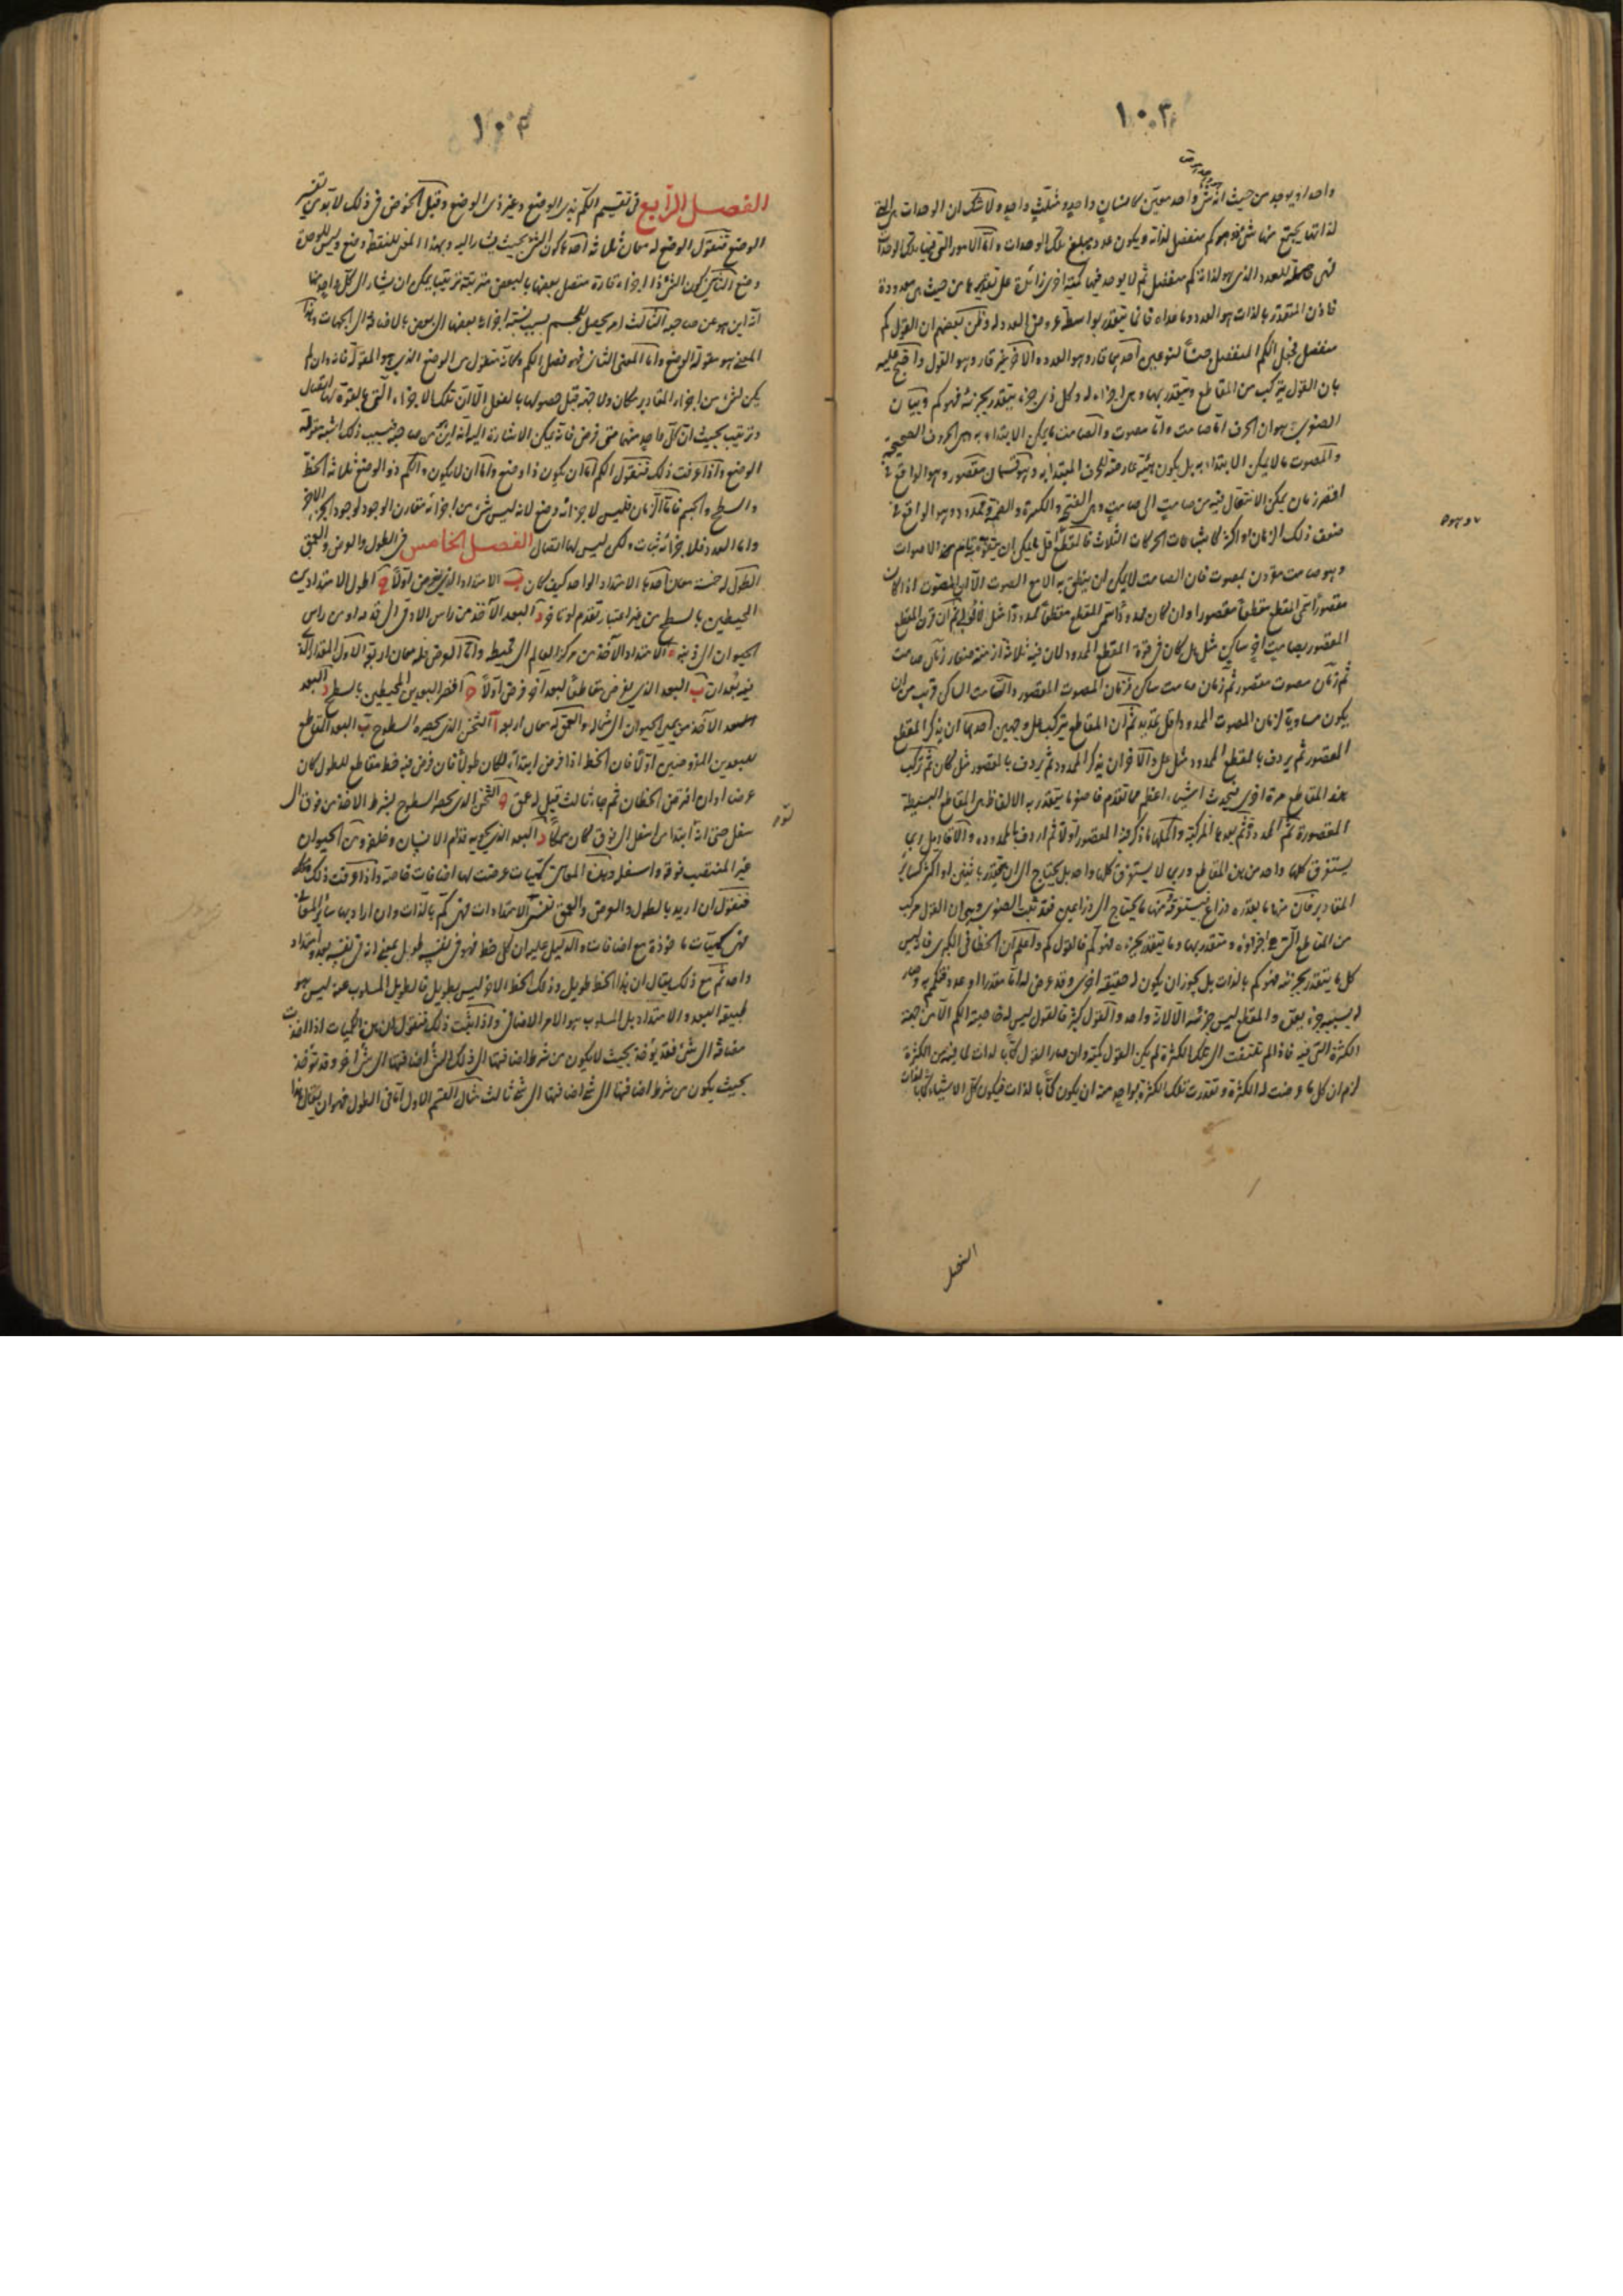 ١٠٣
واحدا ويوجد من حيث انه شئ واحد معين كانسان واحد ومثلث واحد ولا شك ان الوحدات هى التى
لذاتها يجتمع منها شئ فهو كم منفصل لذاته ويكون عدد مبلغ تلك الوحدات واما الامور التى فيها تلك الوحدات
فهى حاملة للعدد الذى هو لذاته كم منفصل ثم لا يوجد فيها كمية اخرى زائدة على من حيث هى معدودة
فاذن المتقدر بالذات هو العدد وما عداه فانما يتقدر بواسطة عروض العدد له وظن بعضهم ان القول كم
منفصل فجعل الكم المنفصل جنسا لنوعين احدهما قار وهو العدد والآخر غير قار وهو القول واحتج عليه
بان القول يتركب من المقاطع ويتقدر بها وهى اجزاء له وكل ذى جزء يتقدر بجزئه فهو كم وبيان
الصغرى هو ان الحرف اما صامت واما مصوت والصامت ما يمكن الابتداء به وهى الحروف الصحيحة
والمصوت ما لا يمكن الابتداء به بل يكون هيئة عارضة للحرف المبتدأ به وهو قسمان مقصور وهو الواقع فى
اقصر زمان يمكن الانتقال فيه من صامت الى صامت وهى الفتحة والكسرة والضمة وممدود وهو الواقع فى
ضعف ذلك الزمان او اكثر كاشباعات الحركات الثلاث فالمقطع اقل ما يمكن ان يتفوه به تاما من الاصوات
وهو صامت مقرون بمصوت فان الصامت لا يمكن ان ينطق به الا مع الصوت الا ان المصوت اذا كان
مقصورا سمى المقطع مقطعا مقصورا وان كان ممدودا سمى المقطع مقطعا ممدودا مثل لا ثم ان قرن المقطع
المقصور بصامت آخر ساكن مثل هل كان فى قوة المقطع الممدود لان فيه ثلاثة ازمنة صغار زمان صامت
ثم زمان مصوت مقصور ثم زمان صامت ساكن فزمان المصوت المقصور والصامت الساكن قريب من ان
يكون مساويا لزمان المصوت الممدود واقل يمتد به ثم ان المقاطع يتركب على وجهين احدهما ان يذكر المقطع
المقصور ثم يردف بالمقطع الممدود مثل على والآخر ان يذكر الممدود ثم يردف بالمقصور مثل كان ثم تركب
هذه المقاطع مرة اخرى فيحدث اشياء اعظم مما تقدم فاصغر ما يتقدر به الالفاظ هى المقاطع البسيطة
المقصورة ثم الممدودة ثم بعدها المركبة واكملها ما ذكر فيه المقصور اولا ثم اردف بالممدود والاقاويل ربما
يستغرق كلها واحد من هذه المقاطع وربما لا يستغرق كلها واحد بل يحتاج الى ان يتقدر باثنين او اكثر كسائر
المقادير فان منها ما يقدره ذراع يستغرقه ومنها ما يحتاج الى ذراعين فقد ثبت الصغرى وهو ان القول مركب
من المقاطع التى هى اجزاؤه ويتقدر بها وما يتقدر بجزئه فهو كم فالقول كم واعلم ان الخطأ فى الكبرى فانه ليس
كل ما يتقدر بجزئه فهو كم بالذات بل يجوز ان يكون له حقيقة اخرى وقد عرض له اما مقدار او عدد
له بسببه جزء يعد والمقطع ليس جزئيته الا لانه واحد والقول كثير فالقول ليس له خاصية الكم الا من جهة
الكثرة التى فيه فاذا لم تلتفت الى تلك الكثرة لم يكن القول كمية وان صار القول كما بالذات لما فيه من الكثرة
لزم ان كل ما عرضت له الكثرة وتقدرت تلك الكثرة بواحد منه ان يكون كما بالذات فيكون كل الاشياء كما بالذات
الفصل
١٠٤
الفصل الرابع فى تقسيم الكم بذى الوضع وغير ذى الوضع وقبل الخوض فى ذلك لا بد من تفسير
الوضع فنقول الوضع له معان ثلاثة احدها كون الشئ بحيث يشار اليه وبهذا المعنى للنقطة وضع وليس للوحدة
وضع الثانى كون الشئ ذا اجزاء قارة متصل بعضها بالبعض مترتبة ترتيبا يمكن ان يشار الى كل واحد منها
انه اين هو عن صاحبه الثالث امر يحصل للجسم بسبب نسبة اجزائه بعضها الى بعض بالاضافة الى الجهات وهذا
المعنى هو مقولة الوضع واما المعنى الثانى فهو فصل الكم وكانه منقول من الوضع الذى هو المقولة فانه وان لم
يكن لشئ من اجزاء المقادير مكان ولا جهة قبل حصولها بالفعل الا ان تلك الاجزاء التى بالقوة لها اتصال
وترتيب بحيث ان كل واحد منها متى فرض فانه يمكن الاشارة اليه انه اين من صاحبه فبسبب ذلك اشبه مقولة
الوضع واذا عرفت ذلك فنقول الكم اما ان يكون ذا وضع واما ان لا يكون والكم ذو الوضع ثلاثة الخط
والسطح والجسم فاما الزمان فليس لاجزائه وضع لانه ليس شئ من اجزائه مقارن الوجود لوجود الجزء الاخر
واما العدد فلاجزائه ثبات ولكن ليس لها اتصال الفصل الخامس فى الطول والعرض والعمق
الطول له خمسة معان احدها الامتداد الواحد كيف كان ب الامتداد الذى يفرض اولا ج اطول الامتدادين
المحيطين بالسطح من غير اعتبار تقدم او تاخر د البعد الآخذ من راس الادمى الى قدمه او من راس
الحيوان الى ذنبه ه الامتداد الآخذ من مركز العالم الى محيطه واما العرض فله معان اربعة الاول المقدار الذى
فيه بعدان ب البعد الذى يفرض مقاطعا لبعد آخر فرض اولا ج اقصر البعدين المحيطين بالسطح د البعد
الآخذ من يمين الحيوان الى شماله والعمق له معان اربعة ا الثخن الذى يحصره السطوح ب البعد المقاطع
للبعدين المفروضين اولا فان الخط اذا فرض ابتداء كان طولا فان فرض فيه خط مقاطع للطول كان
عرضا وان افترض الخطان ثم جاء ثالث قيل له عمق ج الثخن الذى يحصره السطوح بشرط الاخذ من فوق الى
سفل حتى انه ابتدا من اسفل الى فوق كان سمكا د البعد الذى يحويه قدام الانسان وخلفه ومن الحيوان
غير المنتصب فوقه واسفله وهذه المعانى كميات عرضت لها اضافات خاصة واذا عرفت ذلك
فنقول ان اريد بالطول والعرض والعمق نفس الامتدادات فهى كم بالذات وان اراد بها سائر المعانى
فهى كميات ماخوذة مع اضافات والدليل عليه ان كل خط فهو فى نفسه طويل بمعنى انه فى نفسه بعد وامتداد
واحد ثم مع ذلك يقال ان هذا الخط طويل وذلك الخط الاخر ليس بطويل فالطويل المسلوب عنه ليس هو
طبيعة البعد والامتداد بل المسلوب هو الامر الاضافى واذا ثبت ذلك فنقول ان هذه الكميات اذا اخذت
مضافة الى شئ فقد يؤخذ بحيث لا يكون من شرط اضافتها الى ذلك الشئ اضافتها الى شئ آخر وقد تؤخذ
بحيث يكون من شرط اضافتها الى شئ اضافتها الى شئ ثالث مثال القسم الاول اما فى الطول فهو ان يقال هذا